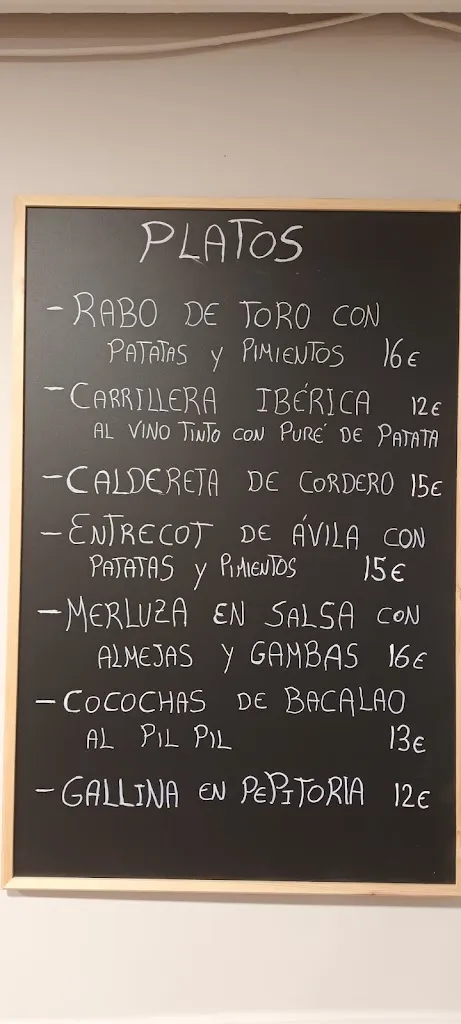 PLATOS
- RABO DE TORO CON
PATATAS Y PIMIENTOS 16€
- CARRILLERA IBÉRICA 12€
AL VINO TINTO CON PURÉ DE PATATA
- CALDERETA DE CORDERO 15€
- ENTRECOT DE ÁVILA CON
PATATAS Y PIMIENTOS 15€
- MERLUZA EN SALSA CON
ALMEJAS Y GAMBAS 16€
- COCOCHAS DE BACALAO
AL PIL PIL 13€
- GALLINA EN PEPITORIA 12€